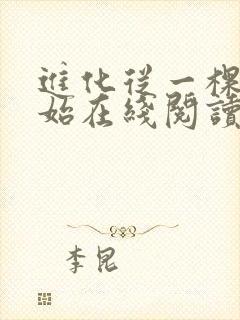 進化從一棵
始在綫閱讀
李昆